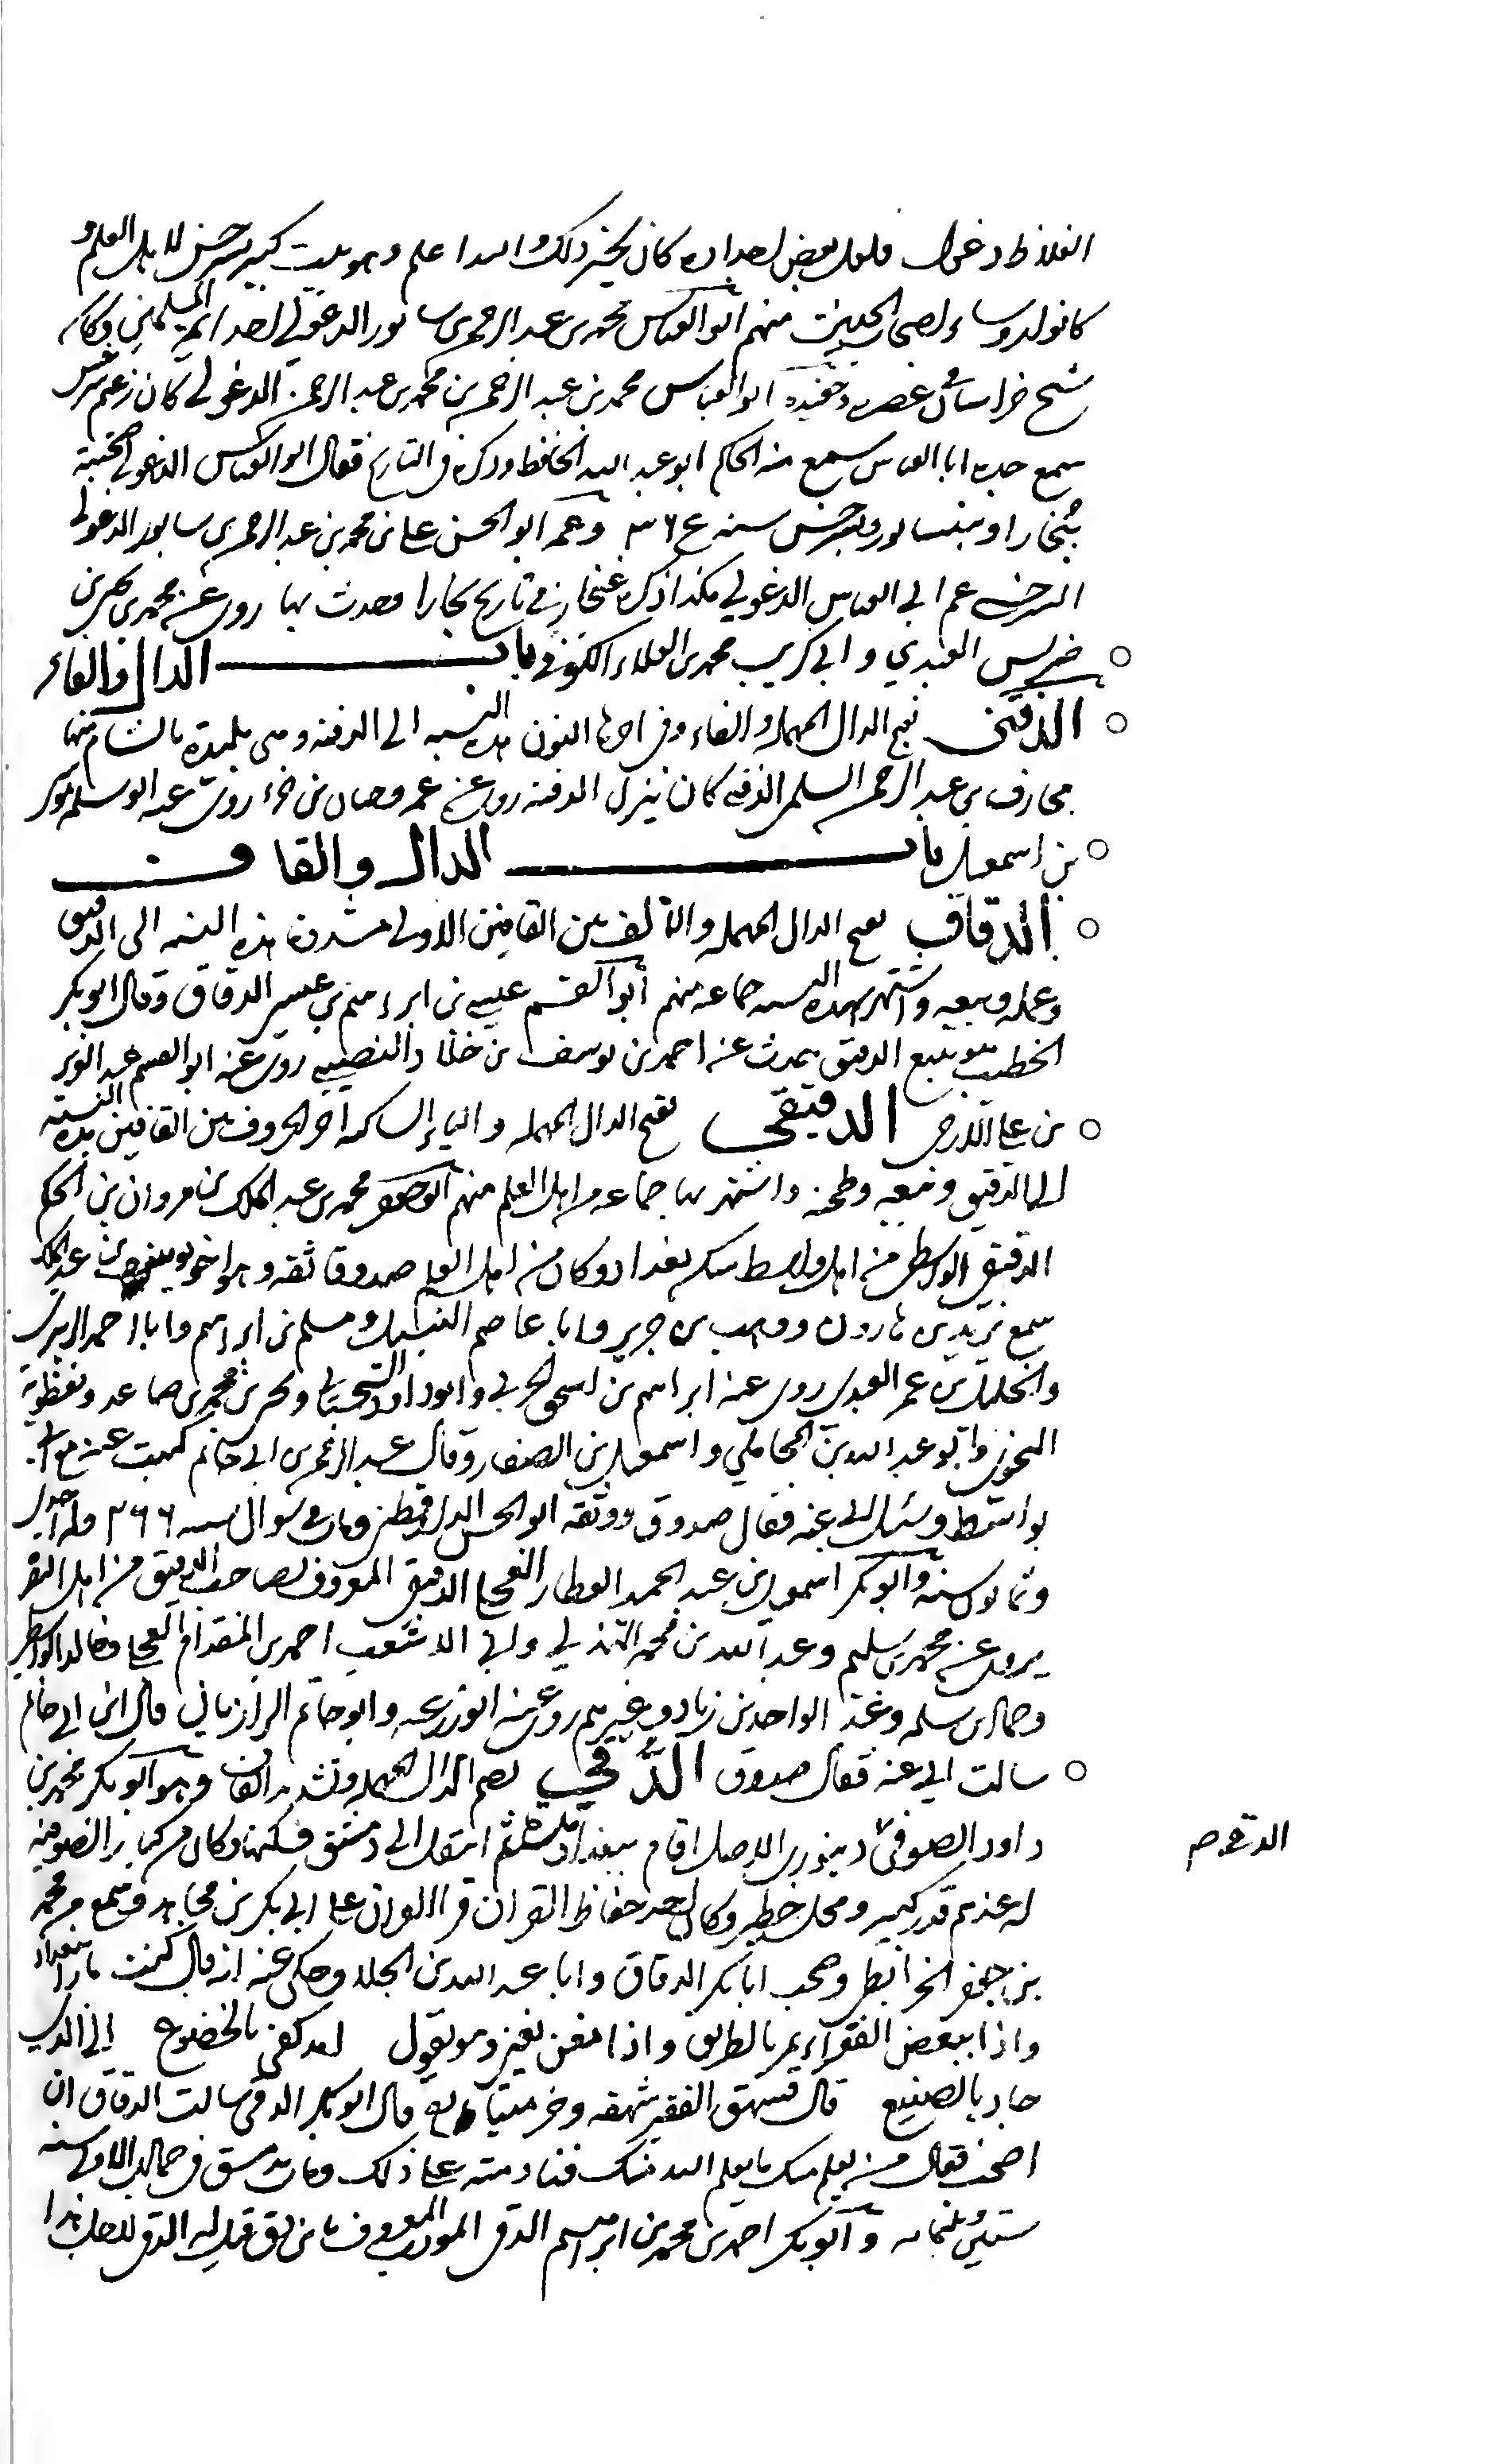 الغلاظ دغول فلعل بعض اجداده كان يخبز ذلك والله اعلم وهو بيت كبير بسرخس لاهل العلم و
كانوا رؤساء اصحاب الحديث منهم ابو العباس محمد بن عبد الرحمن بن سابور الدغولي احد ايمة المسلمين وكان
شيخ خراسان في عصره وحفيده ابو العباس محمد بن عبد الرحمن بن محمد بن عبد الرحمن الدغولي كان زعيم سرخس
سمع جده ابا العباس سمع منه الحاكم ابو عبد الله الحافظ وذكره في التاريخ فقال ابو العباس الدغولي صحبته
ببخارا ونيسابور وسرخس سنه ٣٦٤ وعمه ابو الحسن علي بن محمد بن عبد الرحمن بن سابور الدغولي
السرخسي عم ابي العباس الدغولي هكذا ذكره غنجار في تاريخ بخارا وحدث بها روى عن محمد بن
ضريس العبدي و ابي كريب محمد بن العلاء الكوفي باب الدال والفاء
الدفني بفتح الدال المهملة والفاء وفي اخرها النون هذه النسبه الى الدفنه وهي بليدة بالشام منها
مخارق بن عبد الرحمن السلمي الدفني كان ينزل الدفنه روى عن عمرو حبان بن جزء روى عنه ابو سلمه موسى
بن اسمعيل باب الدال والقاف
الدقاق بفتح الدال المهمله والالف بين القافين الاولى مشددة هذه النسبه الى الدقيق
وعمله وبيعه واشتهر بهذه النسبه جماعه منهم ابو القسم عيسى بن ابراهيم بن عيسى الدقاق وقال ابو بكر
الخطيب هو يبيع الدقيق يحدث عن احمد بن يوسف بن خلاد النصيبي روى عنه ابو القسم عبد العزيز
بن علي الازجي الدقيقي بفتح الدال المهمله والياء الساكنه اخر الحروف بين القافين هذه النسبة
الى الدقيق وبيعه وطحنه واشتهر بها جماعه من اهل العلم منهم ابو جعفر محمد بن عبد الملك بن مروان بن الحكم
الدقيقي الواسطي من اهل واسط سكن بغداد وكان من اهل العلم صدوقا ثقه وهو اخو يوسف بن عبد الملك
سمع يزيد بن هارون ووهب بن جرير وابا عاصم النبيل ومسلم بن ابراهيم وابا احمد الزبيري
والخليل بن عمر العبدي روى عنه ابراهيم بن اسحق الحربي وابو داود السجستاني ويحيى بن محمد بن صاعد ونفطويه
النحوي وابو عبد الله بن المحاملي واسمعيل بن الصفار وقال عبد الرحمن بن ابي حاتم كتبت عنه مع ابي
بواسط وسئل ابي عنه فقال صدوق ووثقه ابو الحسن الدارقطني ومات في شوال سنه ٢٦٦ وله احدى
وثمانون سنه وابو بكر اسمعيل بن عبد الحميد العطار العجلي الدقيقي المعروف بصاحب الدقيق من اهل البصره
يروى عن محمد بن سليم وعبد الله بن محمد الهذلي وابي الاشعث احمد بن المقدام العجلي وخالد الواسطي
وحماد بن سلمه وعبد الواحد بن زياد وغيرهم روى عنه ابو زرعه وابو حاتم الرازياني قال ابن ابي حاتم
سالت ابي عنه فقال صدوق الدُّقّي بضم الدال المهمله وتشديد القاف وهو ابو بكر محمد بن
داود الصوفي دينوري الاصل اقام ببغداد مدة ثم انتقل الى دمشق فسكنها وكان من كبار الصوفيه
له عندهم قدر كبير ومحل خطير وكان احد حفاظ القران قرا القران على ابي بكر بن مجاهد وسمع من محمد
بن جعفر الخرائطي وصحب ابا بكر الدقاق وابا عبد الله بن الجلا وحكى عنه انه قال كنت مارا ببغداد
واذا ببعض الفقراء يمر بالطريق واذا مغن يغني وهو يقول امد كفي بالخضوع الى الذي
جاد بالصنيع قال فشهق الفقير شهقه وخر ميتا قال ابو بكر الدقي سالت الدقاق ان
اصحب فقال من يعلم منك ما يعلم الله منك فنادمته على ذلك ومات بدمشق في جمادى الاولى سنه
ستين وثلثمايه وابو بكر احمد بن محمد بن ابراهيم الدقي المؤدب المعروف بابن دق قيل له الدقي لاجل هذا
الدقي ص